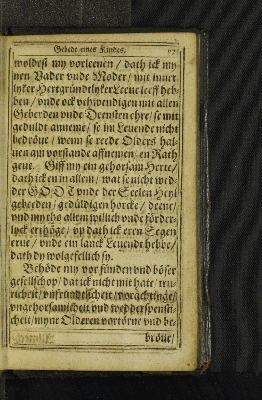 Gebedt eines Kindes.
woldest my vorleenen / dath ick my
nen Vader vnde Moder / mit inner
lyker Hertgründtlyker Leeue leeff heb
ben / vnde ock vthwendigen mit allen
Geberden vnde Deensten ehre / se mit
geduldt anneme / se im Leuende nicht
bedröue / wenn se rede Olders hal
uen am vorstande affnemen / en Rath
geue. Giff my ein gehorsam Herte /
dath ick en in allem / wat je nicht wed-
der GODT vnde der Seelen Heyl
gebeeden / gedüldigen horcke / deene /
vnd my tho allem willich vnde förder-
lyck ertzöge / vp dath ick eren Segen
erue / vnde ein lanck Leuendt hebbe /
dath dy wolgefellich sy.
Behöde my vor sünden vnd böser
gesellschop / dat ick nicht mit hate / tru-
richeit / vnfründtlicheit / vorachtinge /
vngehorsamicheit vnd wedderspensti-
cheit / myne Olderen vortörne vnd be-
bröue /